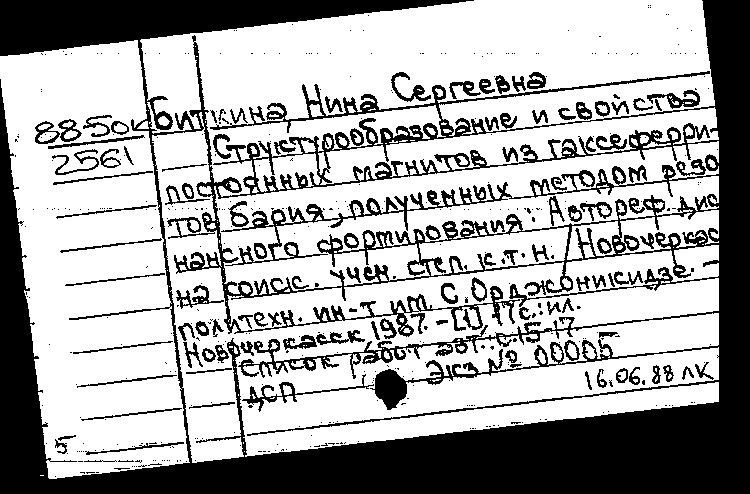 88-50к
2561
Биткина, Нина Сергеевна
Структурообразование и свойства
постоянных магнитов из гаксеферри-
тов бария, полученных методом резо
нансного формирования: Автореф. дис
на соиск. учен. степ. к.т.н. / Новочеркас
политехн. ин-т им. С. Орджоникидзе. –
Новочеркасск, 1987. – [1], 17 с.: ил.
Список работ авт.: с. 15-17.
ДСП Экз № 00005
16.06.88 ЛК
5